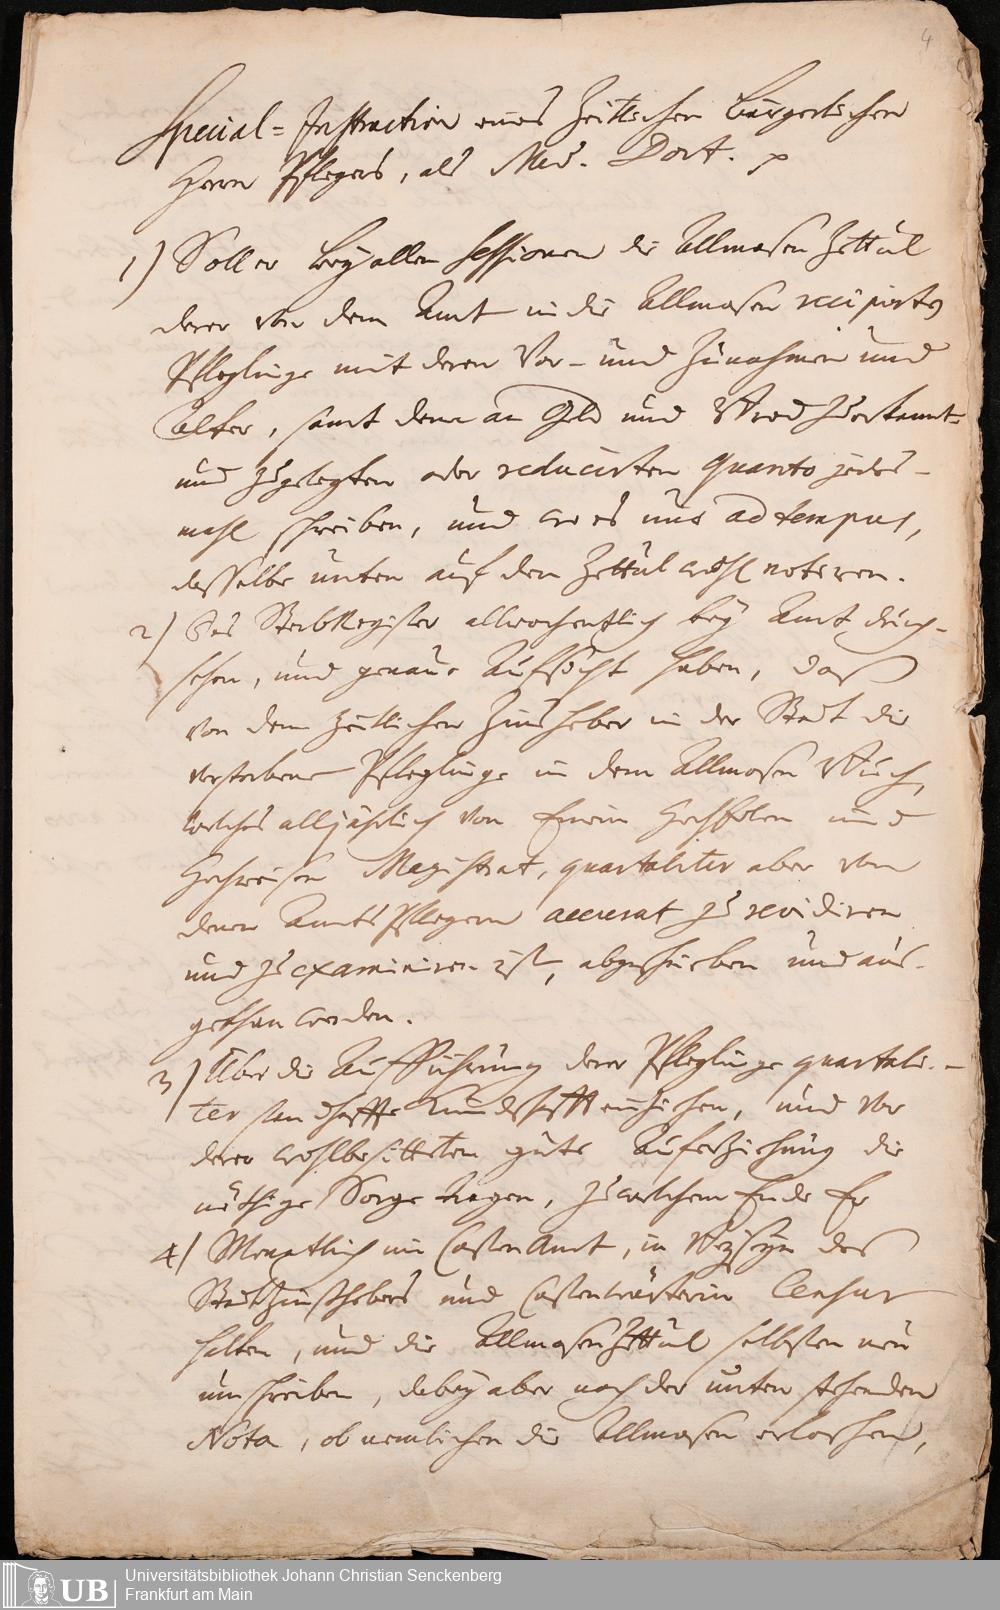 4
Special-Instruction eines Zeitlichen Bürgerlichen
Herrn Pflegers, als Med. Doct. p
1) Soll er bey allen Sessionen die Allmosen Zettul
derer von dem Amt in die Allmosen recipirten
Pfleglinge mit deren Vor- und Zunahmen und
Alter, samt dem an Geld und Brod zuerkannt-
und zugelegten oder reducirten Quanto jedes-
mahl schreiben, und wo es nur ad tempus,
dasselbe unten auf den Zettul wohl notiren.
2) Das SterbRegister allwochentlich bey Amt durch-
sehen, und genaue Aufsicht haben, daß
von dem Zeitlichen Zinsheber in der Stadt die
verstorbene Pfleglinge in dem Allmosen Buch,
welches alljährlich von Einem HochEdlen und
Hochweisen Magistrat, quartaliter aber von
denen Amts Pflegern accurat zu revidiren
und zu examiniren ist, abgeschrieben und aus-
gethan werden.
3) Über die Aufführung derer Pfleglinge quartali-
ter standhaffte Kundschafft einziehen, und vor
derer wohlbesitteten gute Auferziehung die
nöthige Sorge tragen, zu welchem Ende Er
4) Monatlich im CastenAmt, in Beyseyn des
StadtZinßhebers und Castenwärterin Censur
halten, und die AllmosenZettul selbsten neu
umschreiben, dabey aber nach der unten stehenden
Nota, ob nemlichen die Allmosen erloschen,
UB Universitätsbibliothek Johann Christian Senckenberg
Frankfurt am Main